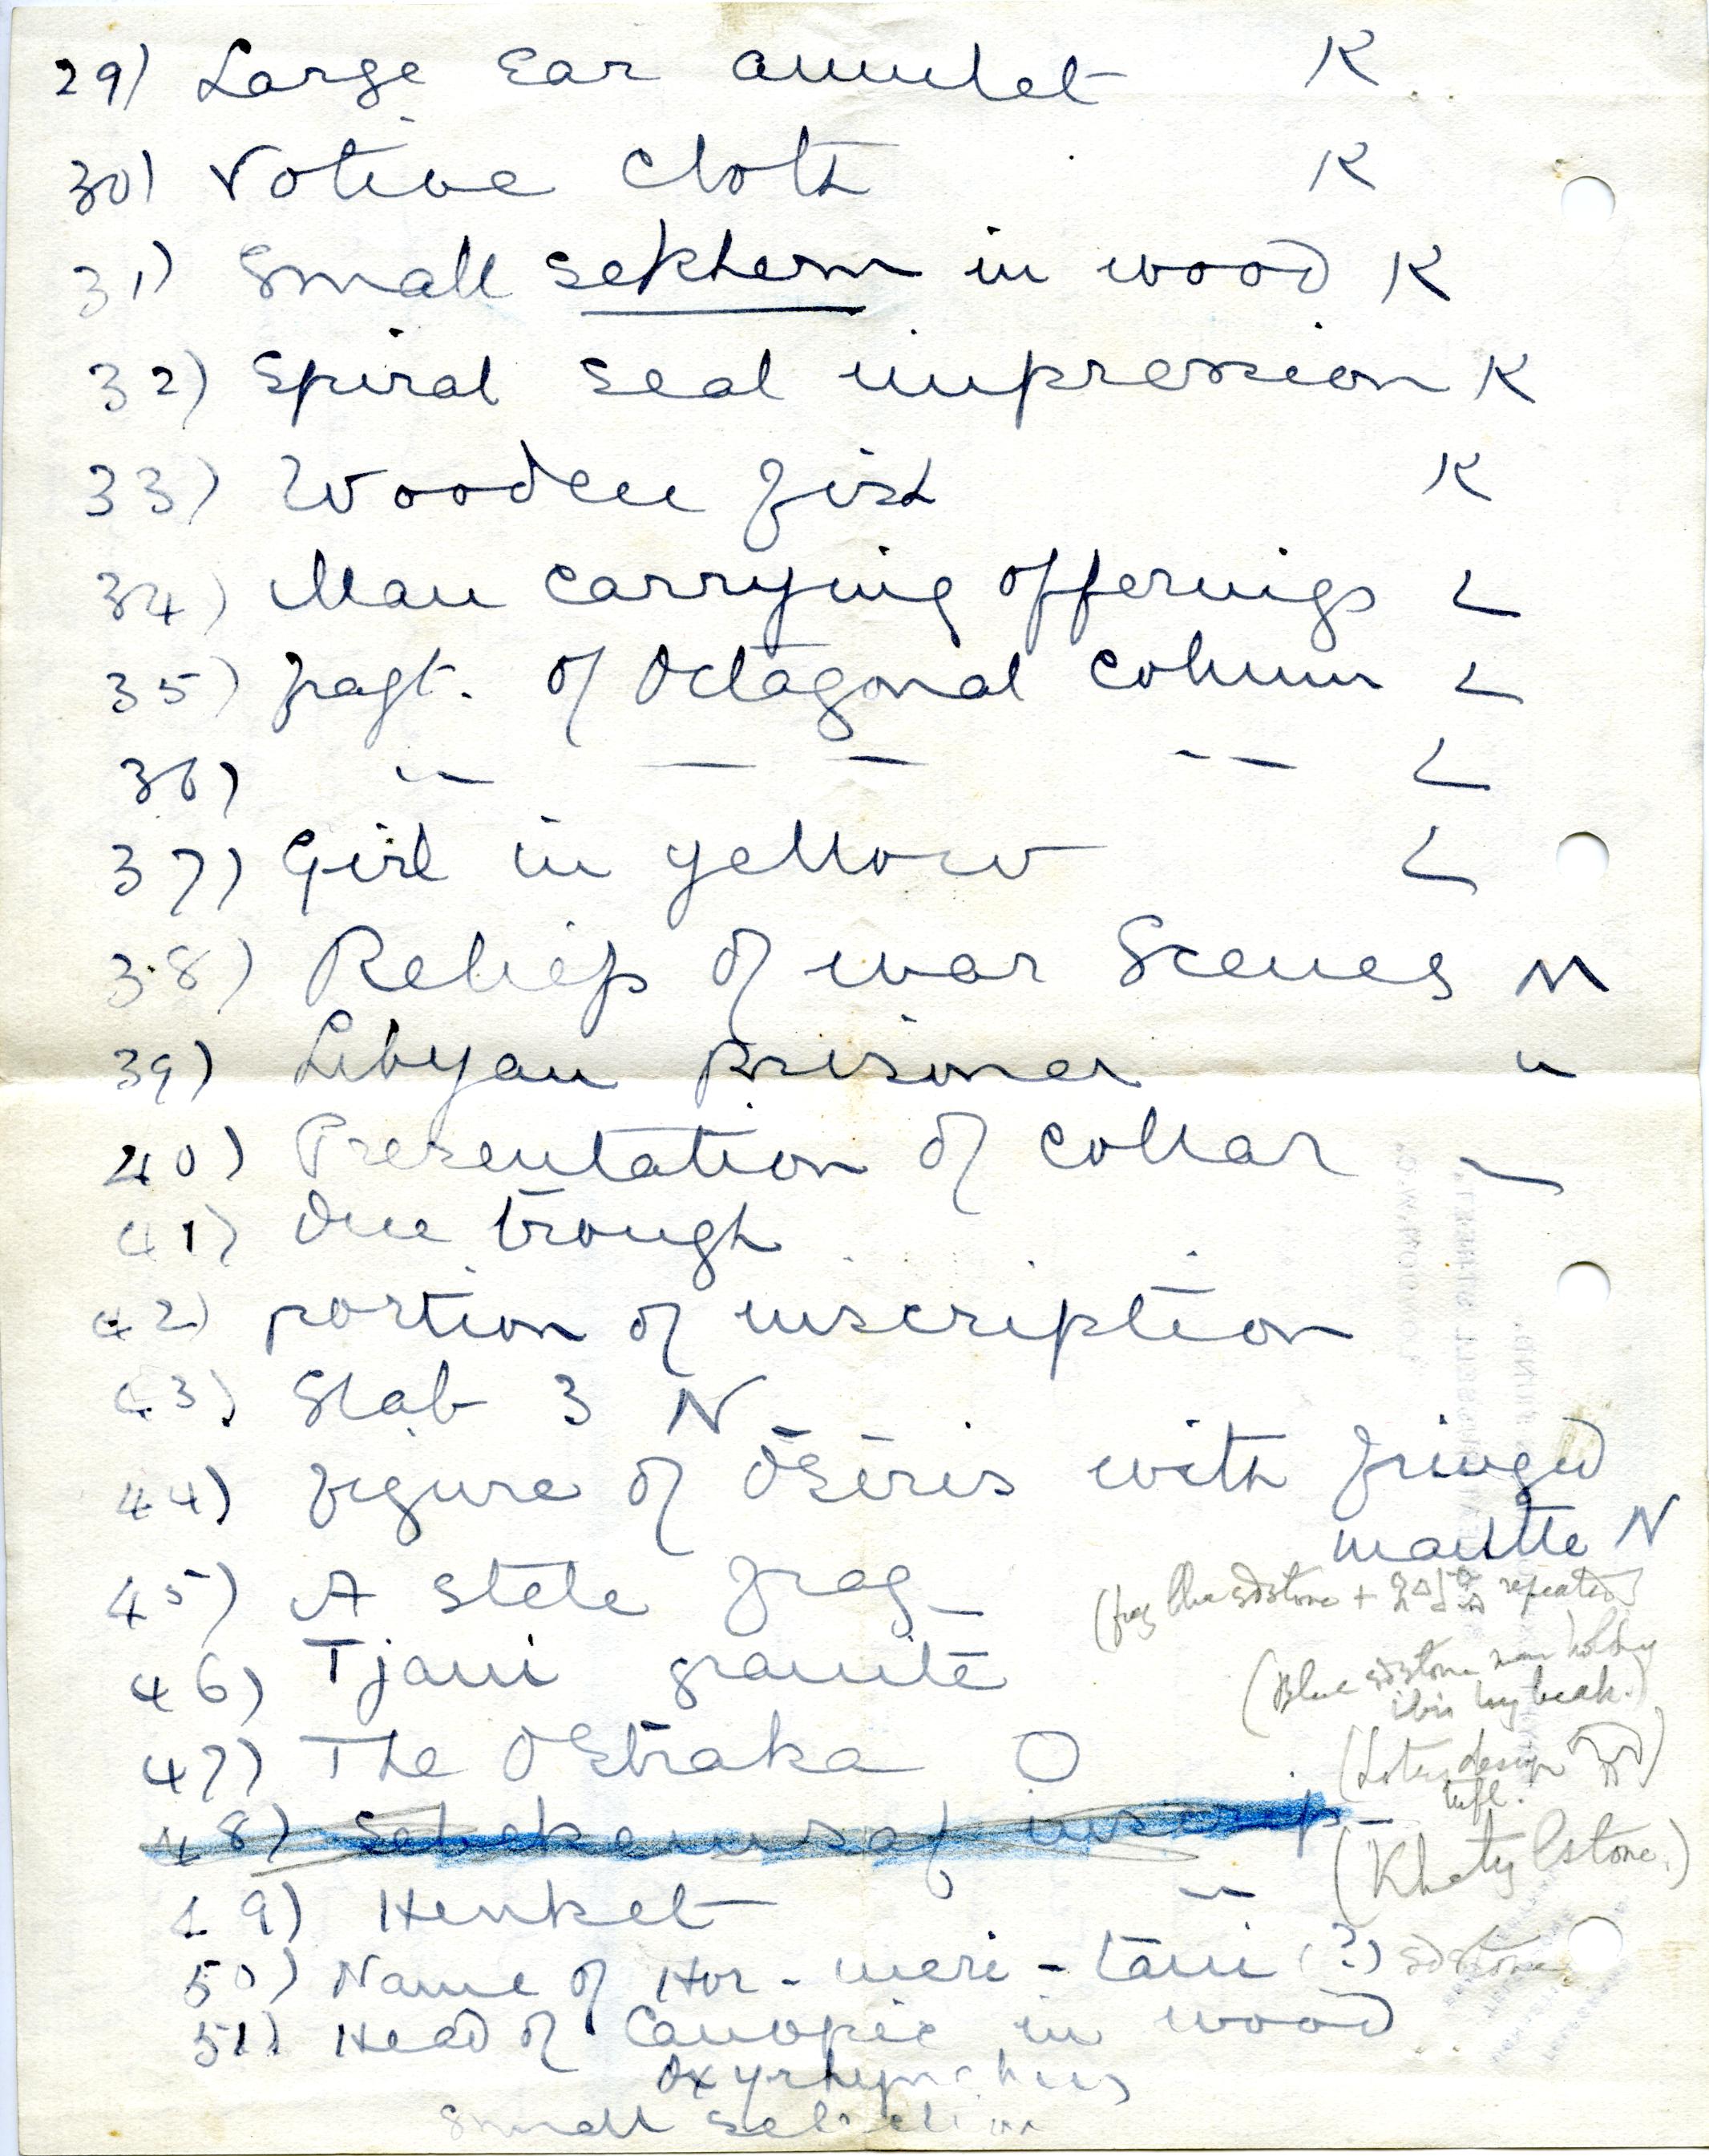 29) Large Ear amulet K
30) Votive Cloth K
31) Small sekhem in wood K
32) Spiral seal impression K
33) Wooden fist K
34) Man carrying offerings L
35) fragt. of Octagonal column L
36) " — — " — L
37) Girl in yellow L
38) Reliefs of war Scenes M
39) Libyan prisoner "
40) Presentation of collar —
41) One trough
42) portion of inscription
43) Slab 3 N
44) figure of Osiris with fringed
mantle N
45) A stele frag_
(frag blue sdstone + repeated)
46) Tjaui granite
(Blue sdstone man holding
ibis by beak.)
47) The Ostraka O
(Lotus design)
48) Sebekemsaf inscrip-
(Khety lstone.)
49) Henket "
50) Name of Hor-meri-taui (?) sdstone
51) Head of Canopic in wood
Oxyrhynchus
Small selection